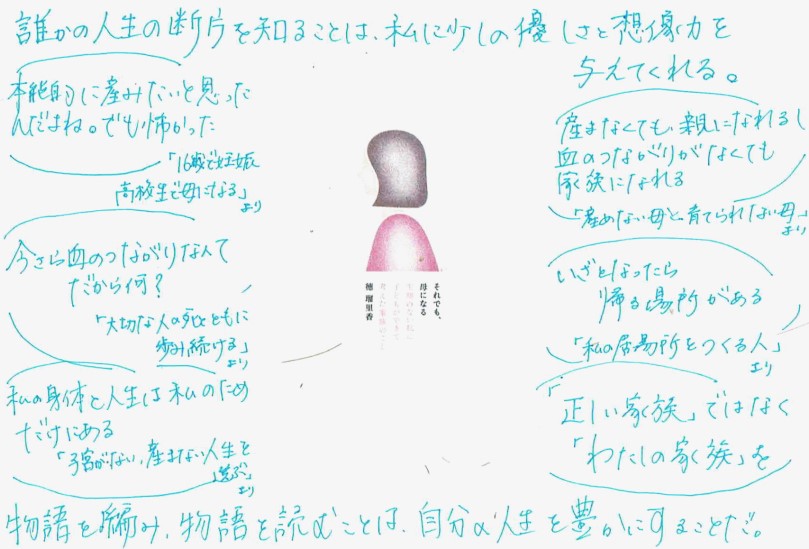 誰かの人生の断片を知ることは、私に少しの優しさと想像力を
与えてくれる。
本能的に産みたいと思った
んだよね。でも怖かった
「16歳で妊娠
高校生で母になる」
より
今さら血のつながりなんて
だから何?
「大切な人の死とともに
歩み続ける」
より
私の身体と人生は私のため
だけにある
「子宮がない、産まない人生を
選ぶ」
より
それでも、
母になる
生理のない私に
子どもができて
考えた家族のこと
徳瑠里香
産まなくても、親になれるし
血のつながりがなくても
家族になれる
「産めない母と、育てられない母」
より
いざとなったら
帰る場所がある
「私の居場所をつくる人」
より
「正しい家族」ではなく
「わたしの家族」を
物語を編み、物語を読むことは、自分の人生を豊かにすることだ。